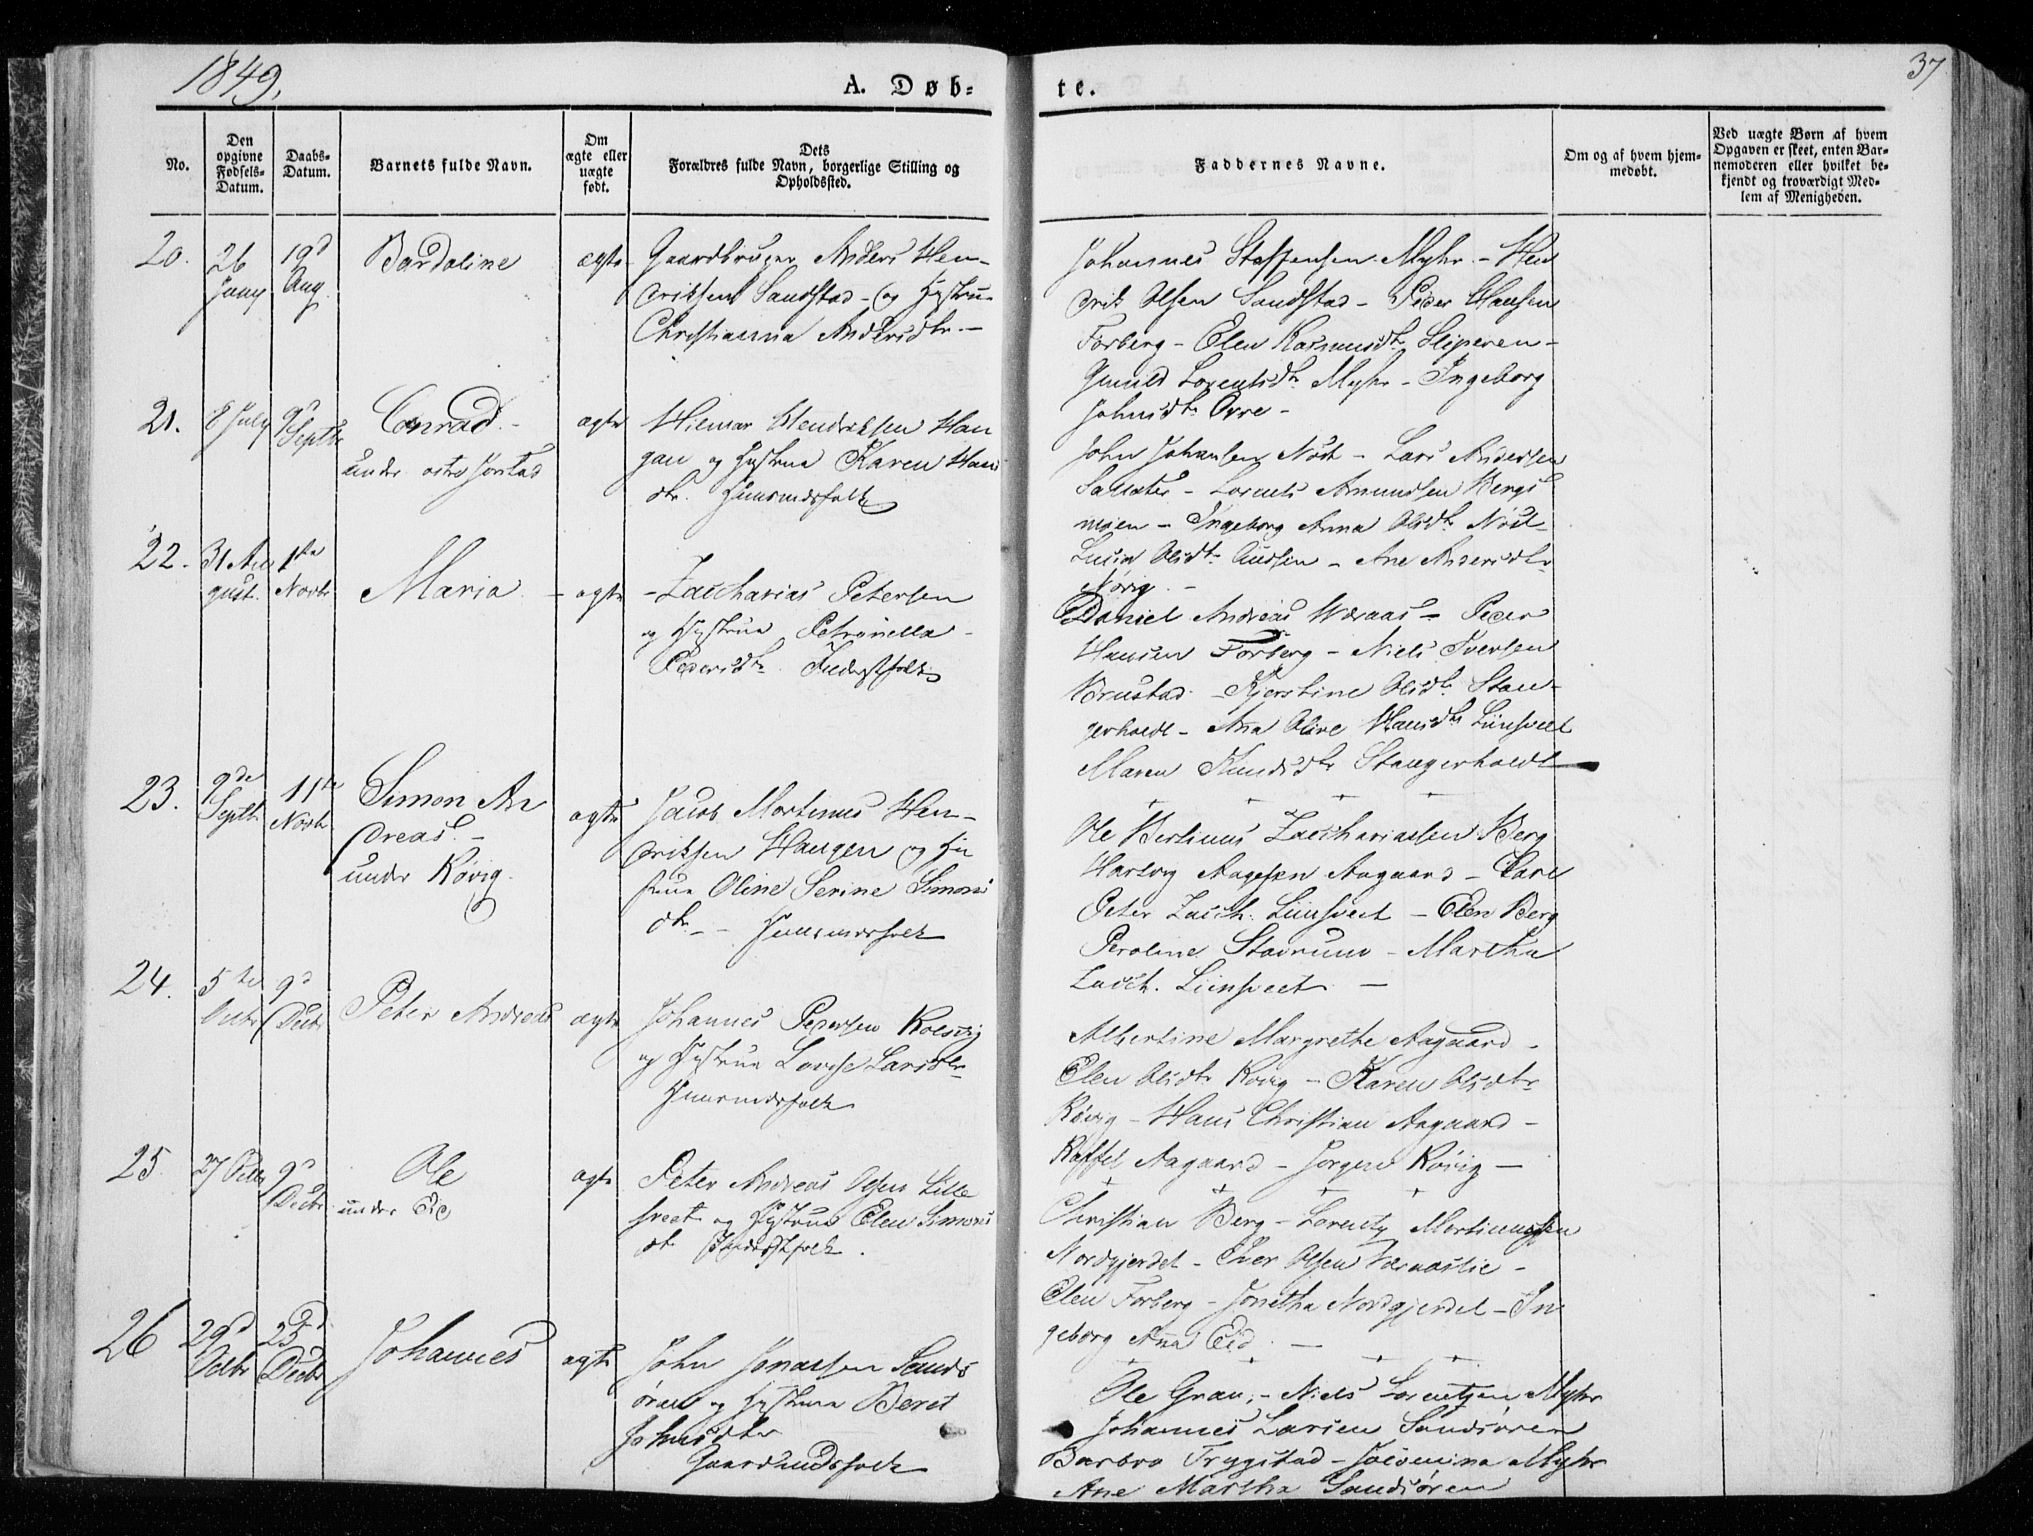 1849.
A. Døb=
te.
37
No.
Den opgivne Fødsels-Datum.
Daabs-Datum.
Barnets fulde Navn.
Om ægte eller uægte født.
Dets Forældres fulde Navn, borgerlige Stilling og Opholdssted.
Faddernes Navne.
Om og af hvem hjemmedøbt.
Ved uægte Børn af hvem Opgaven er skeet, enten Barnemoderen eller hvilket bekjendt og troværdigt Medlem af Menigheden.
20.
26
19d
Aug.
Bardoline
ægte
Gaardbruger Anders Hen-
driksen Sandstad - og Hustru
Christianna Andersdtr. -
Johannes Staffensen Myhr - Hen
drik Olsen Sandstad - Peder Hansen
Forberg - Elen Rasmusdtr Sliperen -
Gunild Lorentsdtr Myhr - Ingeborg
Johnsdtr Ovre -
21.
8 July
9d
Septbr
Conrad -
under Jørstad
ægte
Hilmar Hendriksen Hau
gan og Hustrue Karen Hans
dtr. Huusmdsfolk
John Johansen Nøst - Lars Andersen
Salsæter - Lorents Amundsen Bergs
moen - Ingeborg Anna Olsdtr Nøst -
Olsdtr - Ane Andersdtr
22.
31 Au
gust.
1ste
Novbr
Maria
ægte
Zaccharias Petersen
og Hustrue Petronella
Pedersdtr Inderstfolk
Daniel Andreas Væraas - Peder
Hansen Forberg - Niels Iversen
Brustad - Kjerstine Olsdtr Stan-
gerholdt - Ana Oline Hansdtr Liinsveet
Maren Knudsdtr Stangerholdt
23.
9de
Septbr
11te
Novbr
Simon An
dreas -
under Røvig.
ægte
Jacob Martinus Hen-
driksen Haugen og Hu
strue Oline Serine Simons
dtr - Huusmdsfolk
Ole Bertinus Zacchariasen Berg
Hartvig Aagesen Aagaard - Carl
Peter Zacch. Liinsveet - Elen Berg
Peroline Stavrum - Martha
Zacch. Liinsveet -
24.
5te
9d
Decbr
Peter Andreas
ægte
Johannes Pedersen Kolsvig
og Hustrue Lovise Larsdtr
Huusmdsfolk
Albertine Margrethe Aagaard -
Elen Olsdtr Røvig - Karen Olsdtr
Røvig - Hans Christian Aagaard -
Raffel Aagaard - Jørgen Røvig -
25.
27 Octbr
9d
Decbr
Ole
under Eid
ægte
Peter Andreas Olsen Lille
sveet og Hustrue Elen Simons
dtr Inderstfolk.
Christian Berg - Lorentz Martinussen
Nordgjerdet - Iver Olsen Værnaslie -
Elen Forberg - Jonetha Nordgjerdet - In
geborg Anna Eid. -
26
29d
Octbr
23d
Decbr
Johannes
ægte
John Jonassen Sands
øren og Hustrue Beret
Johnsdtr
Gaardmdsfolk
Ole Gran, - Niels Lorentzen Myhr
Johannes Larsen Sandsøren
Barbro Trygstad - Myhr
Ane Martha Sandsøren